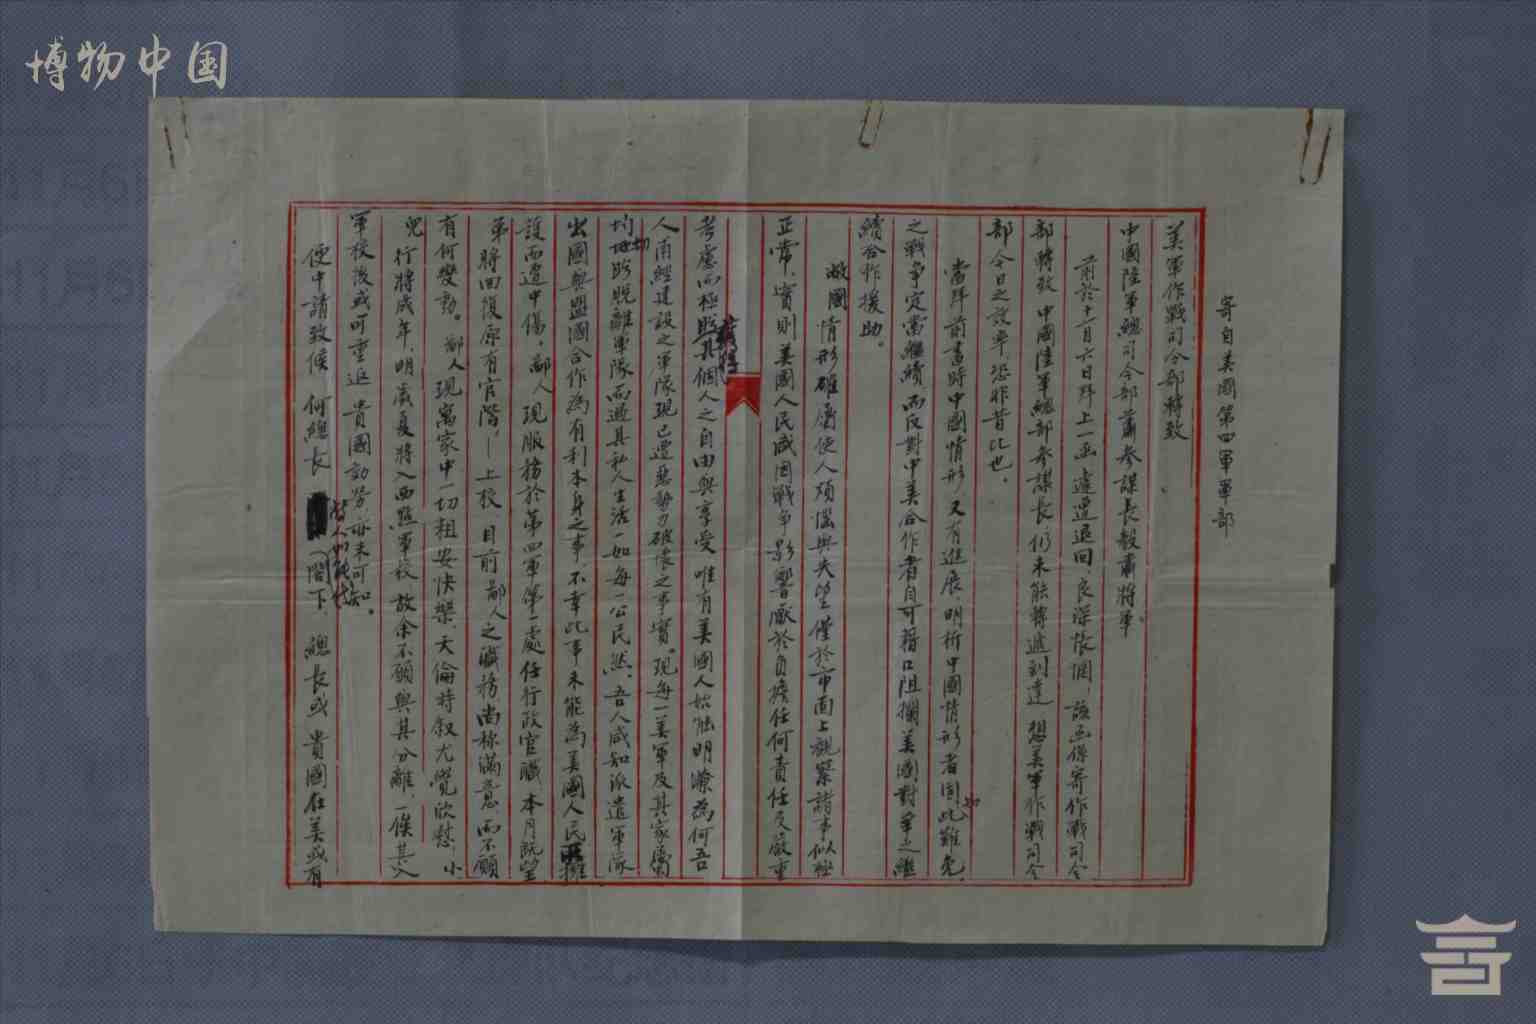 博物中国
寄自美國第四軍軍部
美軍作戰司令部轉致
中國陸軍總司令部蕭參謀長毅肅將軍
前於十一月六日拜上一函遽遭退回，良深悵惘，該函係寄作戰司令
部轉致 中國陸軍總部參謀長仍未能轉遞到達 想美軍作戰司令
部今日之效率，恐非昔比也，
當拜前書時中國情形又有進展，明析中國情形者固知此難免，
之戰爭定當繼續，而反對中美合作者自可藉口阻攔美國對華之繼
續合作援助。
敝國情形雖屬使人煩惱與失望僅於市面上視察諸事似極
正常，實則美國人民咸因戰爭影響厭於負擔任何責任及嚴重
考慮而極獲得其個人之自由與享受 唯有美國人始能明瞭為何吾
人甫經建設之軍隊現已遭惡勢力破壞之事實。現每一美軍及其家屬
均切盼脫離軍隊而過其私人生活一如每一公民然，吾人咸知派遣軍隊
出國與盟國合作為有利本身之事，不幸此事未能為美國人民擁
護而遭中傷，鄙人現服務於第四軍第一處任行政官職 本月既望
弟將回復原有官階，—上校 目前鄙人之職務尚称滿意，而不願
有何變動。鄙人現寓家中一切粗安快樂，天倫時叙尤覺欣慰，小
兒行將成年，明歲夏將入西點軍校，故余不願與其分離，一俟其入
軍校後或可重返 貴國効勞，亦未可知。
便中請致候 何總長 閣下，總長或 貴國在美或有